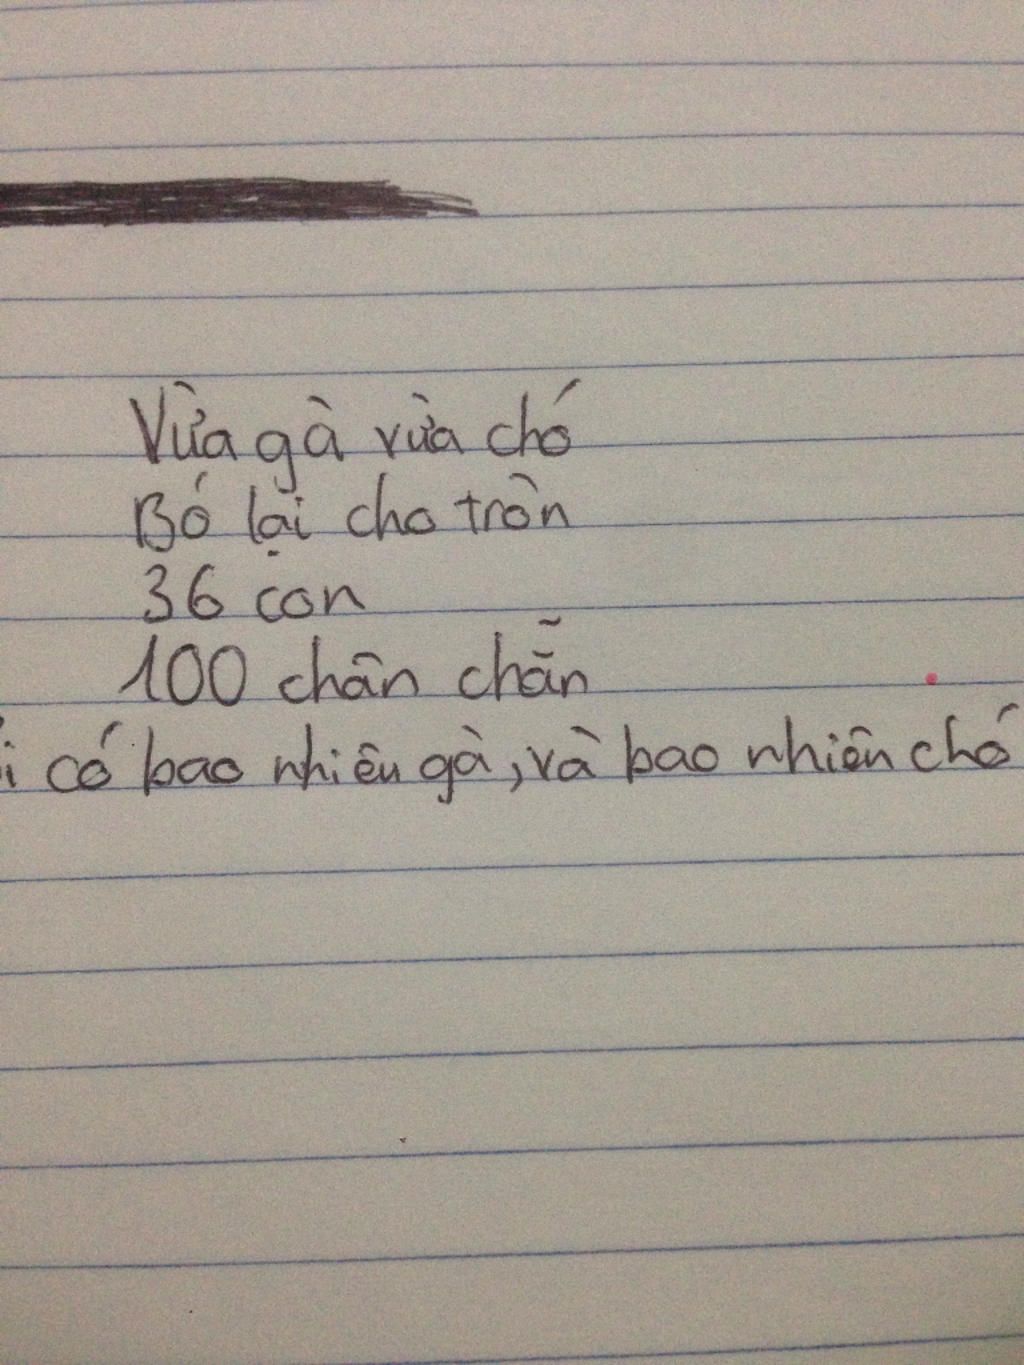 Vừa gà vừa chó
Bó lại cho tròn
36 con
100 chân chẵn
có bao nhiêu gà, và bao nhiên chó